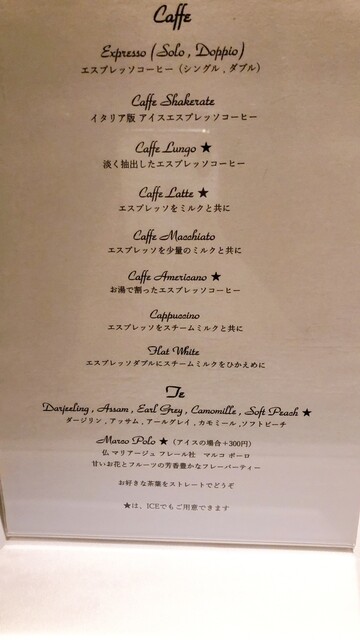 Caffe
Expresso ( Solo , Doppio )
エスプレッソコーヒー（シングル , ダブル）
Caffe Shakerate
イタリア版 アイスエスプレッソコーヒー
Caffe Lungo ★
淡く抽出したエスプレッソコーヒー
Caffe Latte ★
エスプレッソをミルクと共に
Caffe Macchiato
エスプレッソを少量のミルクと共に
Caffe Americano ★
お湯で割ったエスプレッソコーヒー
Cappuccino
エスプレッソをスチームミルクと共に
Flat White
エスプレッソダブルにスチームミルクをひかえめに
Te
Darjeeling , Assam , Earl Grey , Camomille , Soft Peach ★
ダージリン , アッサム , アールグレイ , カモミール , ソフトピーチ
Marco Polo ★（アイスの場合＋300円）
仏 マリアージュ フレール社　マルコ ポーロ
甘いお花とフルーツの芳香豊かなフレーバーティー
お好きな茶葉をストレートでどうぞ
★は、ICEでもご用意できます